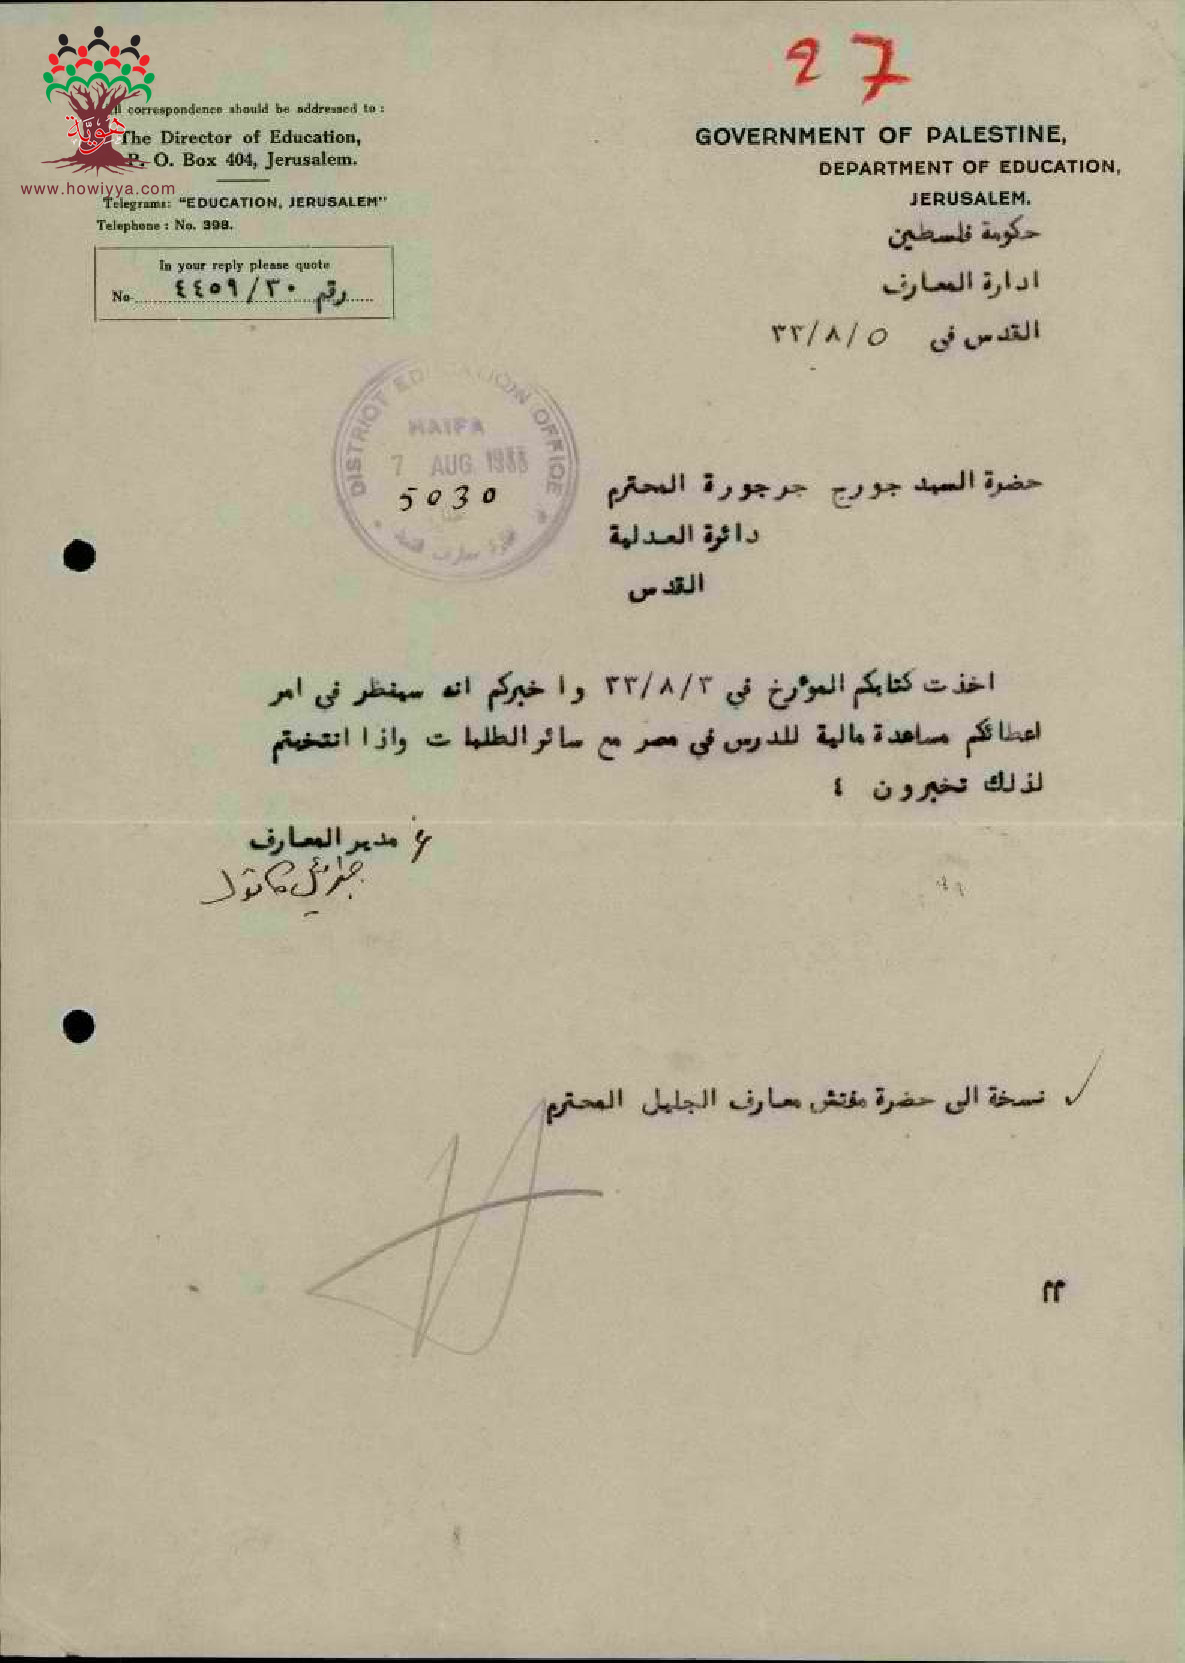 27
All correspondence should be addressed to :
The Director of Education,
P. O. Box 404, Jerusalem.
Telegrams: "EDUCATION, JERUSALEM"
Telephone : No. 398.
In your reply please quote
No رقم ٤٤٥٩/٣٠
هوية
www.howiyya.com
GOVERNMENT OF PALESTINE,
DEPARTMENT OF EDUCATION,
JERUSALEM.
حكومة فلسطين
ادارة المعارف
القدس في ٣٣/٨/٥
DISTRICT EDUCATION OFFICE
HAIFA
7 AUG 1933
5030
حضرة السيد جورج جرجورة المحترم
دائرة العدلية
القدس
اخذت كتابكم المؤرخ في ٣٣/٨/٣ واخبركم انه سينظر في امر
اعطائكم مساعدة مالية للدرس في مصر مع سائر الطلبات واذا انتخبتم
لذلك تخبرون ٤
ع مدير المعارف
جبرائيل كاتول
نسخة الى حضرة مفتش معارف الجليل المحترم